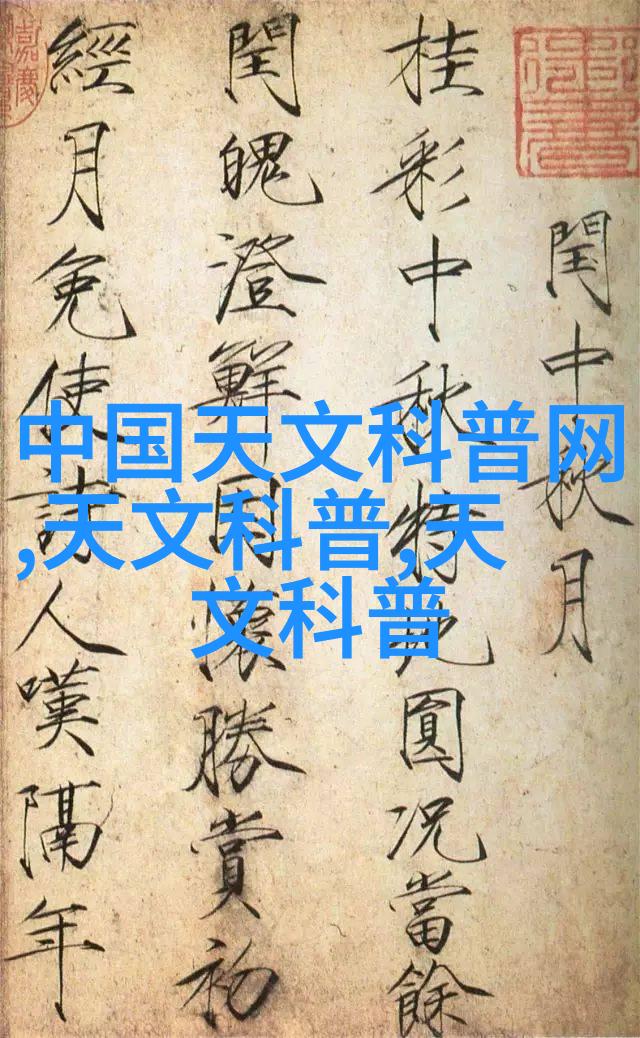 閏中秋月
桂彩中秋特地圓況當餘
閏魄澄鮮因懷勝賞初
經月免使詩人嘆隔年
中国天文科普网
,天文科普,天
文科普